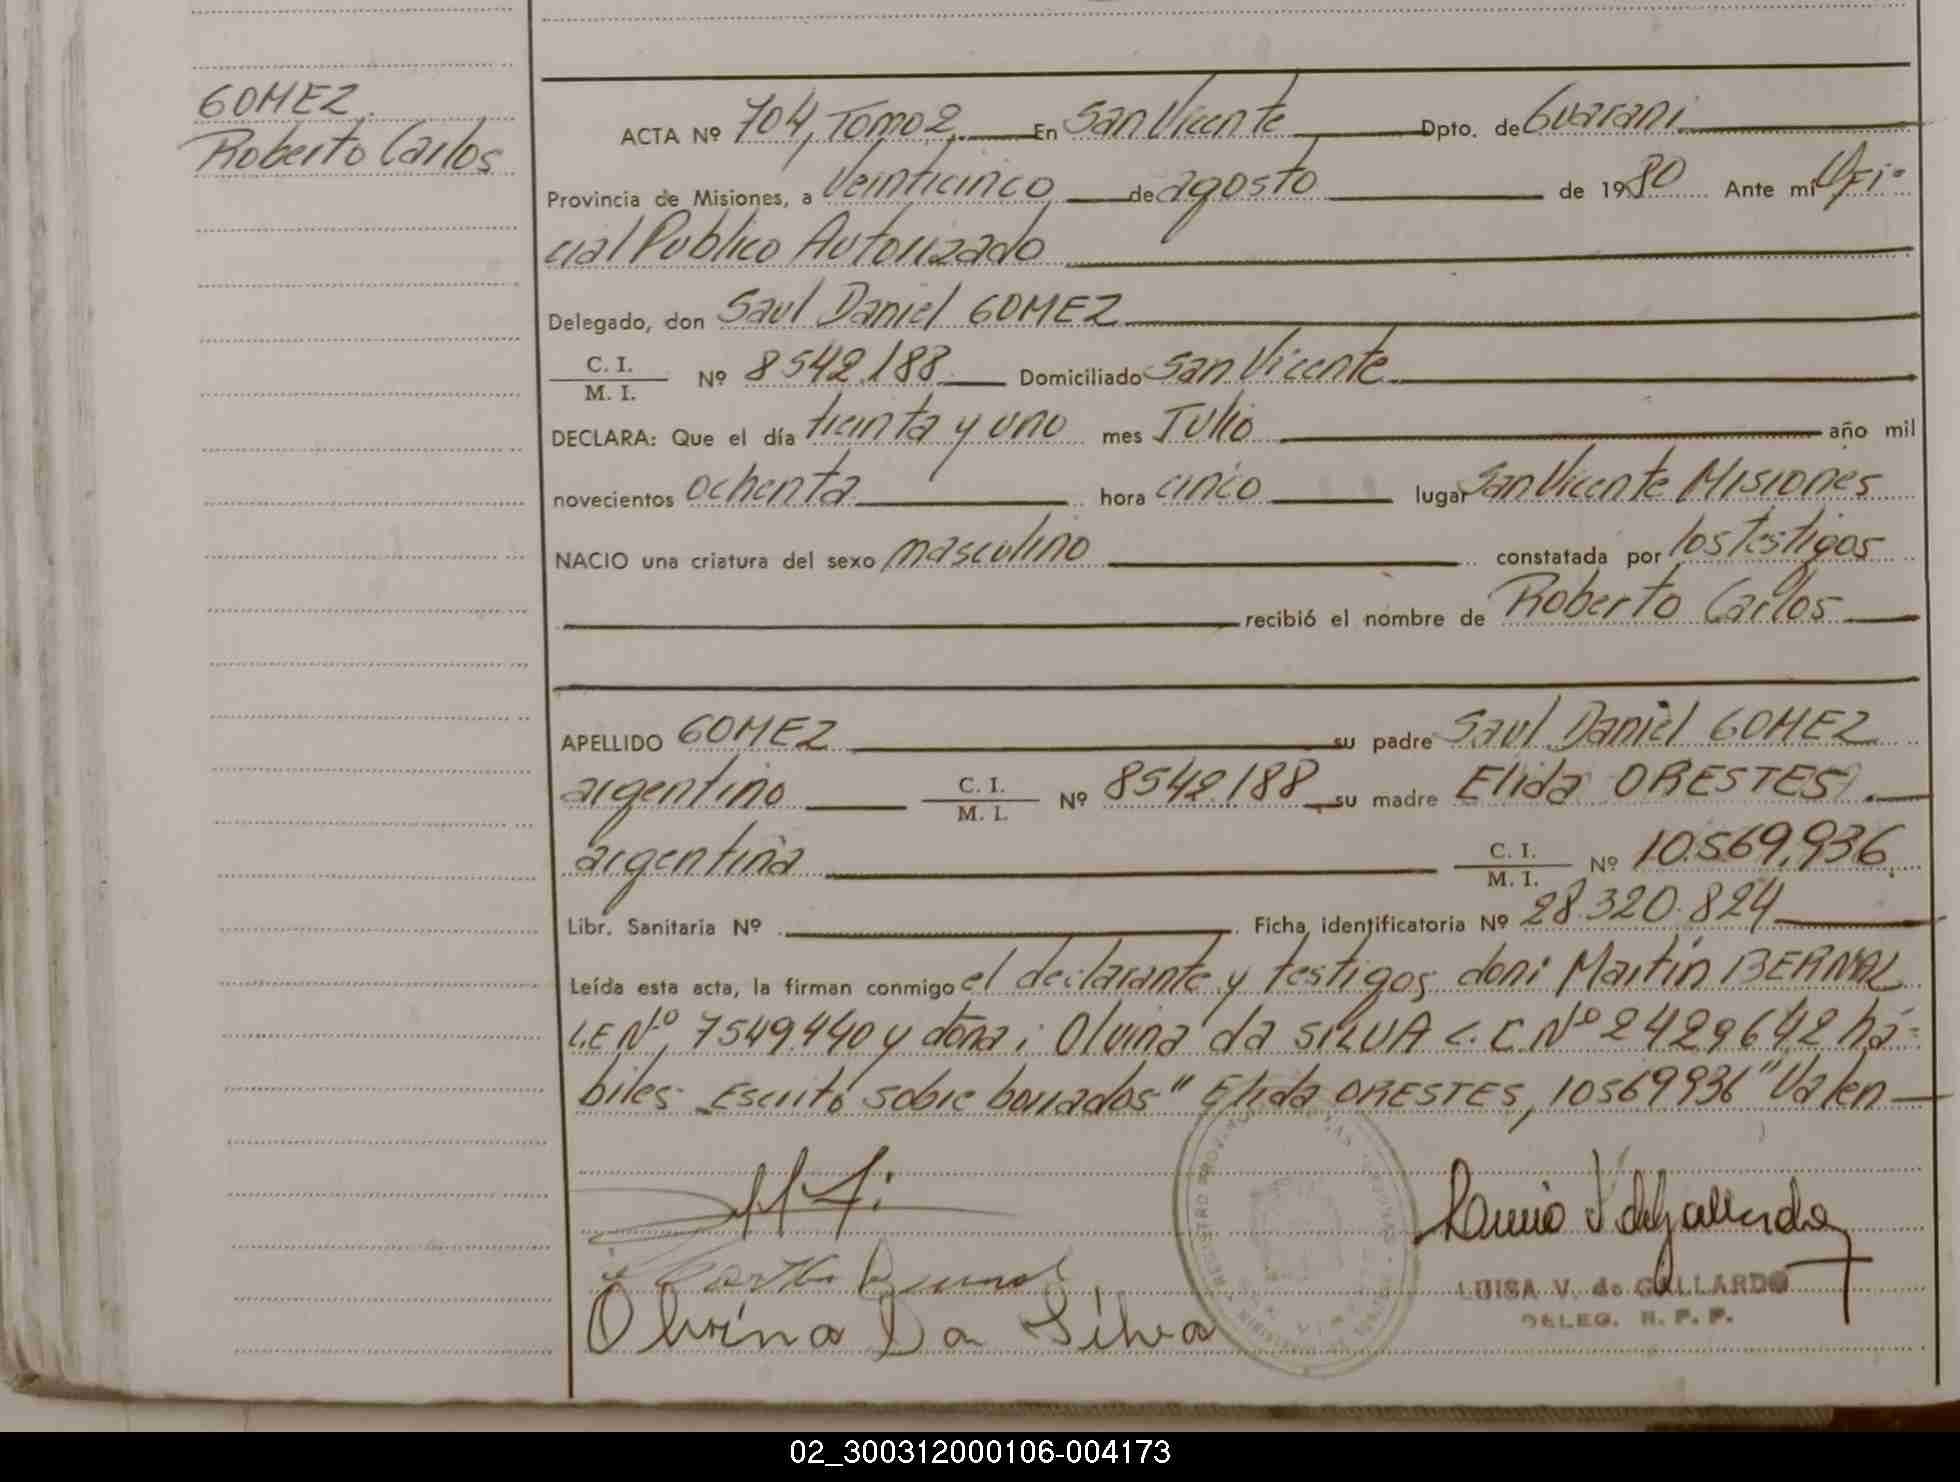 GOMEZ
Roberto Carlos
ACTA Nº 704, Tomo 2. En San Vicente Dpto. de Guarani
Provincia de Misiones, a veinticinco de agosto de 1980 Ante mi Ofi-
cial Publico Autorizado
Delegado, don Saul Daniel GOMEZ
C. I.
M. I. Nº 8542.188 Domiciliado San Vicente
DECLARA: Que el día treinta y uno mes Julio año mil
novecientos ochenta hora cinco lugar San Vicente Misiones
NACIO una criatura del sexo masculino constatada por los testigos
recibió el nombre de Roberto Carlos
APELLIDO GOMEZ su padre Saul Daniel GOMEZ
argentino C. I. M. I. Nº 8542.188 su madre Elida ORESTES
argentina C. I. M. I. Nº 10.569.936
Libr. Sanitaria Nº Ficha identificatoria Nº 28.320.824
Leída esta acta, la firman conmigo el declarante y testigos don: Martín BERNAL
L.E Nº 7549.440 y doña: Olvina da SILVA C.C Nº 2429642 há-
biles. Escrito sobre borrados "Elida ORESTES, 10569936" Valen
Olvina Da Silva
LUISA V. de GALLARDO
DELEG. R. P. P.
02_300312000106-004173